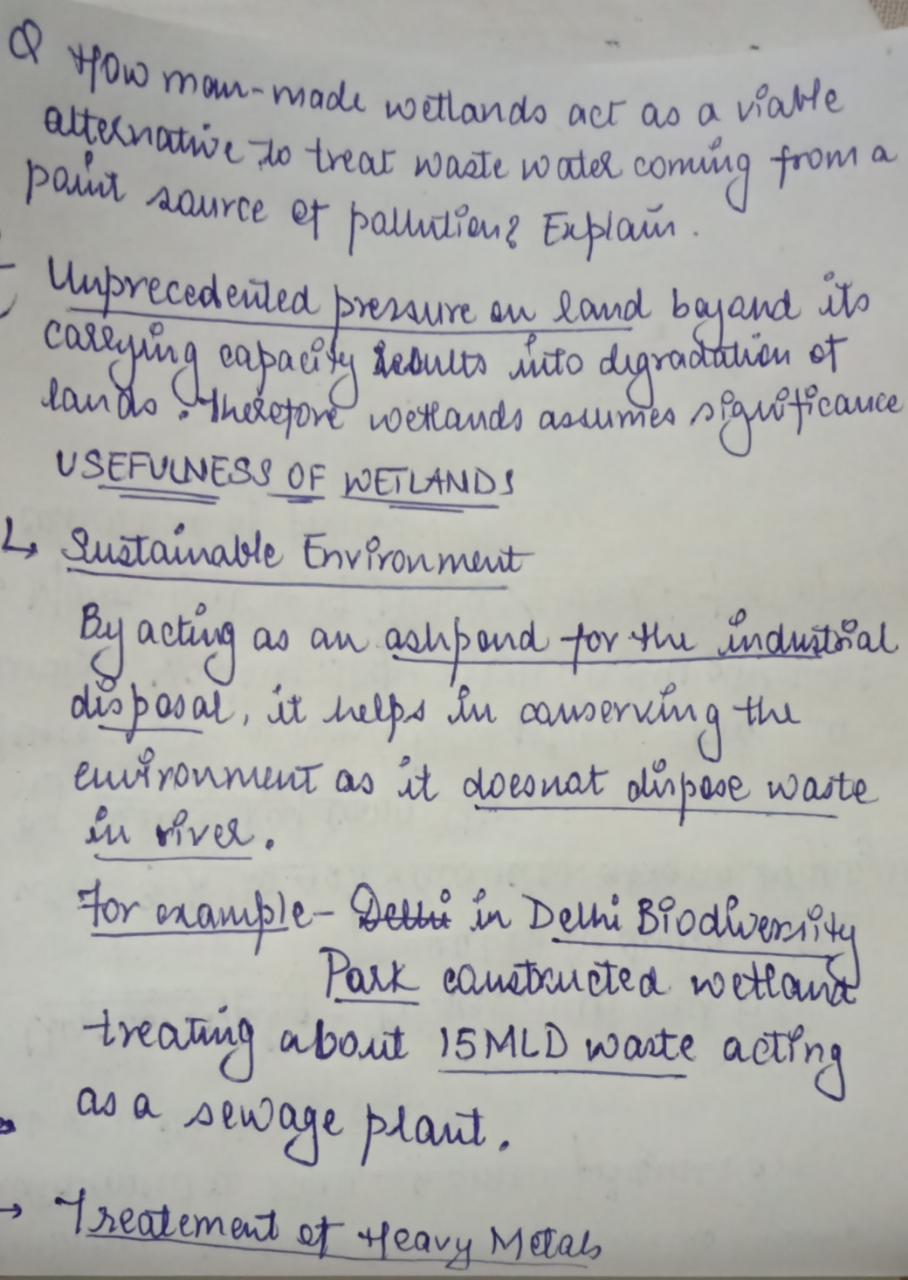 Q How man-made wetlands act as a viable
alternative to treat waste water coming from a
point source of pollution? Explain.
Unprecedented pressure on land beyond its
carrying capacity results into degradation of
lands. Therefore wetlands assumes significance
USEFULNESS OF WETLANDS
↳ Sustainable Environment
By acting as an ashpond for the industrial
disposal, it helps in conserving the
environment as it doesnot dispose waste
in river.
For example- Delhi in Delhi Biodiversity
Park constructed wetland
treating about 15MLD waste acting
as a sewage plant.
→ Treatement of Heavy Metals